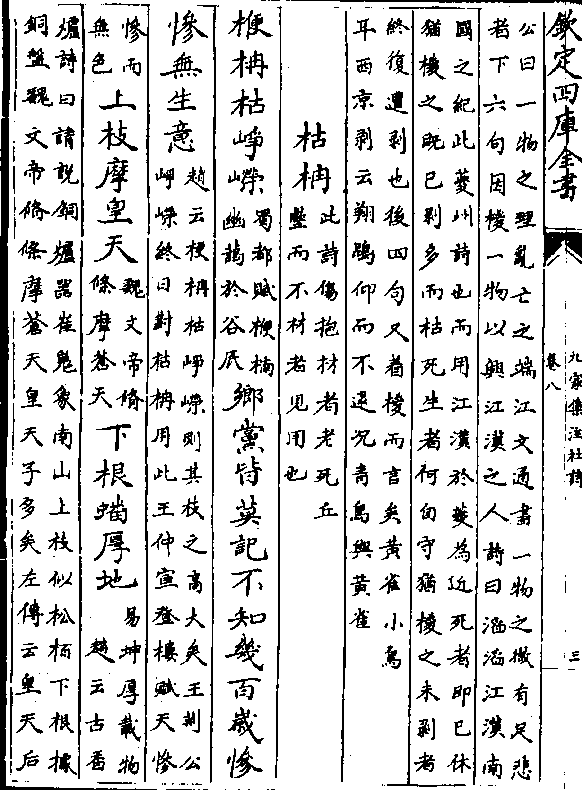 欽定四庫全書
九家集注杜詩
卷八
三
公曰一物之理亂亡之端江文通書一物之微有足悲
者下六句因椶一物以興江漢之人詩曰滔滔江漢南
國之紀此䕫州詩也而用江漢於䕫為近死者即已休
猶椶之既已剥多而枯死生者何自守猶椶之未剥者
終復遭剥也後四句又着椶而言矣黄雀小鳥
耳西京剥云翔鵾仰而不逮况青鳥與黄雀
枯柟
此詩傷抱材者老死丘
壑而不材者見用也
楩柟枯崢嶸
蜀都賦楩楠
幽藹於谷底
鄉黨皆莫記不知幾百歲慘
慘無生意
趙云楩柟枯崢嶸則其枝之高大矣王荆公
崢嶸終日對枯柟用此王仲宣登樓賦天慘
慘而
無色
上枝摩皇天
魏文帝脩
條摩蒼天
下根蟠厚地
易坤厚載物
趙云古香
爐詩曰請説銅爐器崔嵬象南山上枝似松栢下根據
銅盤魏文帝脩條摩蒼天皇天子多矣左傳云皇天后